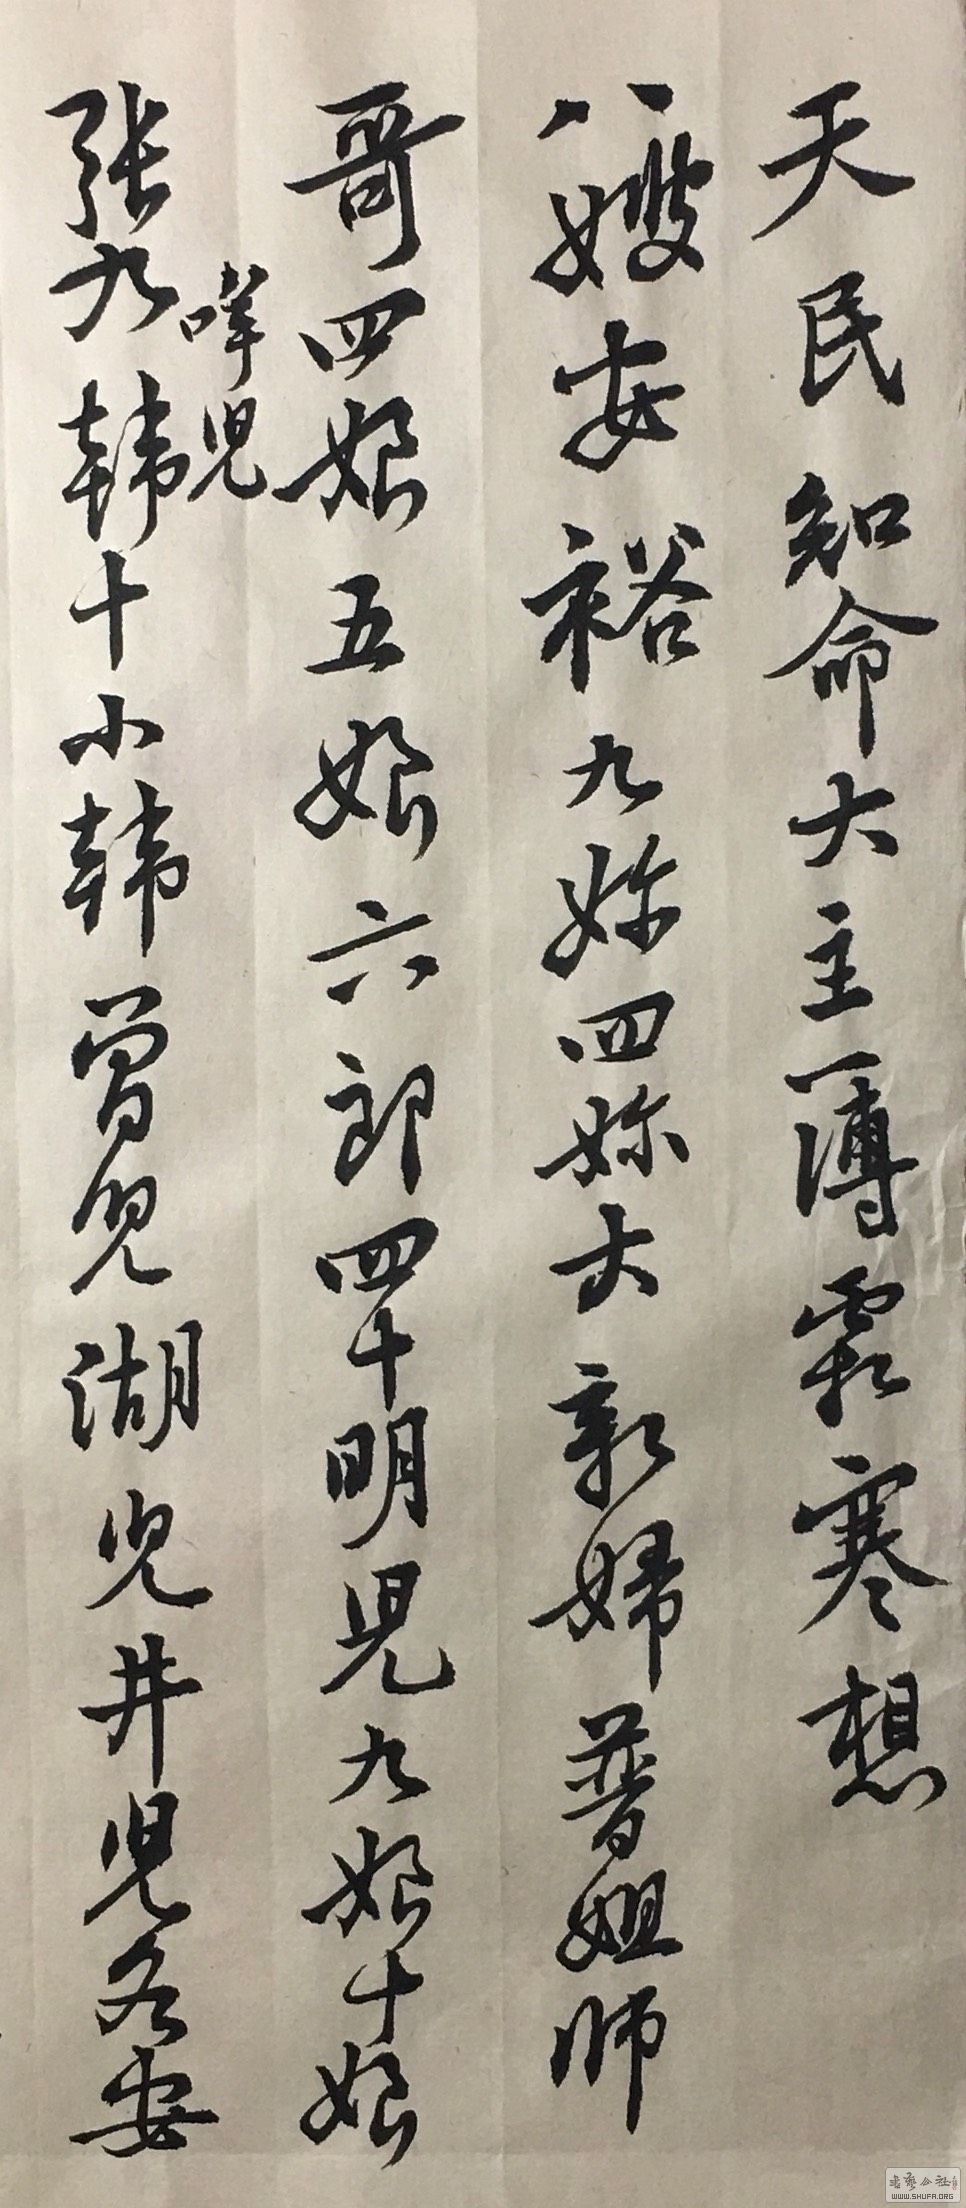 天民知命大主簿霜寒想
八嫂安裕九妳四妳大新婦普姐師
哥四娘五娘六郎四十明兒九娘十娘
咩兒
張九韓十小韓曾兒湖兒井兒各安
WWW.SHUFA.ORG